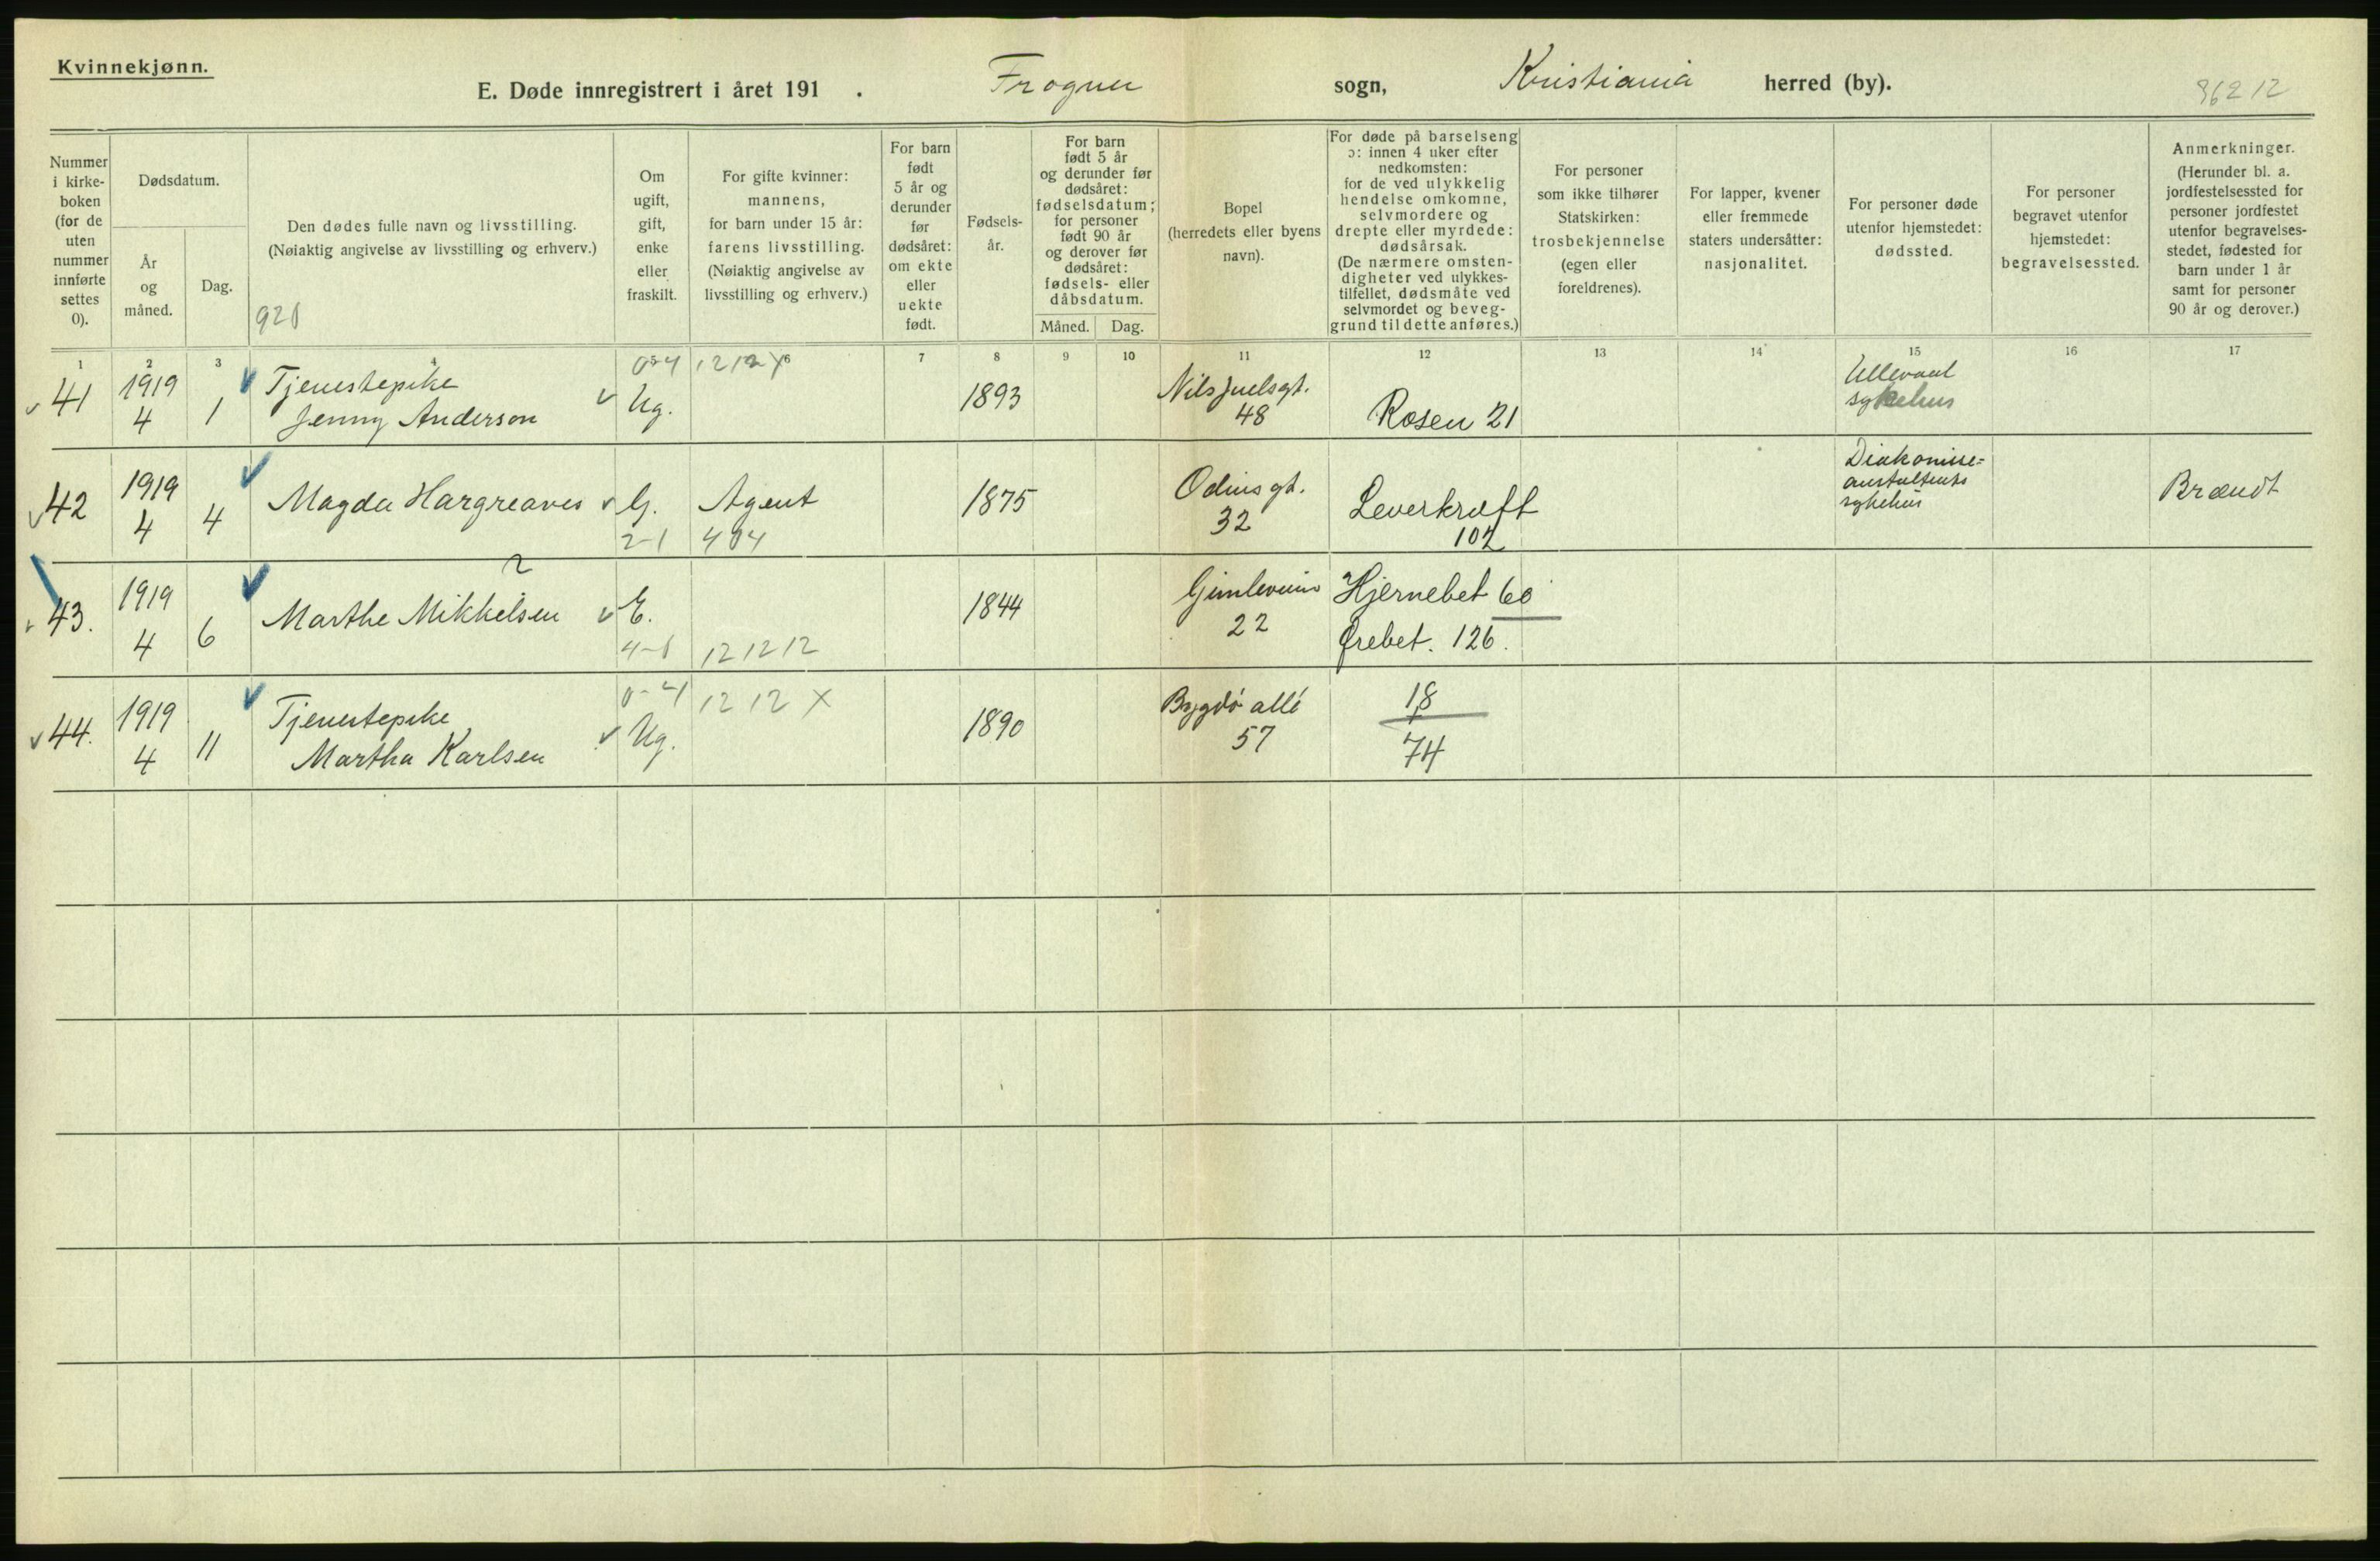 Kvinnekjønn.
E. Døde innregistrert i året 191 . Frogner sogn, Kristiania herred (by). 36212
Nummer i kirke- boken (for de uten nummer innførte settes 0).
Dødsdatum.
År og måned.
Dag.
Den dødes fulle navn og livsstilling.
(Nøiaktig angivelse av livsstilling og erhverv.)
920
Om ugift, gift, enke eller fraskilt.
For gifte kvinner: mannens, for barn under 15 år: farens livsstilling. (Nøiaktig angivelse av livsstilling og erhverv.)
For barn født 5 år og derunder før dødsåret: om ekte eller uekte født.
Fødsels- år.
For barn født 5 år og derunder før dødsåret: fødselsdatum; for personer født 90 år og derover før dødsåret: fødsels- eller dåbsdatum.
Måned. Dag.
Bopel (herredets eller byens navn).
For døde på barselseng ɔ: innen 4 uker efter nedkomsten: for de ved ulykkelig hendelse omkomne, selvmordere og drepte eller myrdede: dødsårsak. (De nærmere omsten- digheter ved ulykkes- tilfellet, dødsmåte ved selvmordet og beveg- grund til dette anføres.)
For personer som ikke tilhører Statskirken: trosbekjennelse (egen eller foreldrenes).
For lapper, kvener eller fremmede staters undersåtter: nasjonalitet.
For personer døde utenfor hjemstedet: dødssted.
For personer begravet utenfor hjemstedet: begravelsessted.
Anmerkninger. (Herunder bl. a. jordfestelsessted for personer jordfestet utenfor begravelses- stedet, fødested for barn under 1 år samt for personer 90 år og derover.)
1 2 3 4 5 6 7 8 9 10 11 12 13 14 15 16 17
41 1919 4 1 Tjenestepike Jenny Anderson 0-4 Ug. 12 12 X 1893 Nils Juelsgt. 48 Rosen 21 Ullevaal sykehus
42 1919 4 4 Magda Hargreaves G. 2-1 Agent 404 1875 Odins gt. 32 Leverkræft 102 Diakonisse= anstaltens sykehus Brændt
43. 1919 4 6 Marthe Mikkelsen E. 12 12 12 1844 22 Hjernebet 60 Ørebet. 126.
44. 1919 4 11 Tjenestepike Martha Karlsen 0-4 Ug. 12 12 X 1890 Bygdö allé 57 18 74